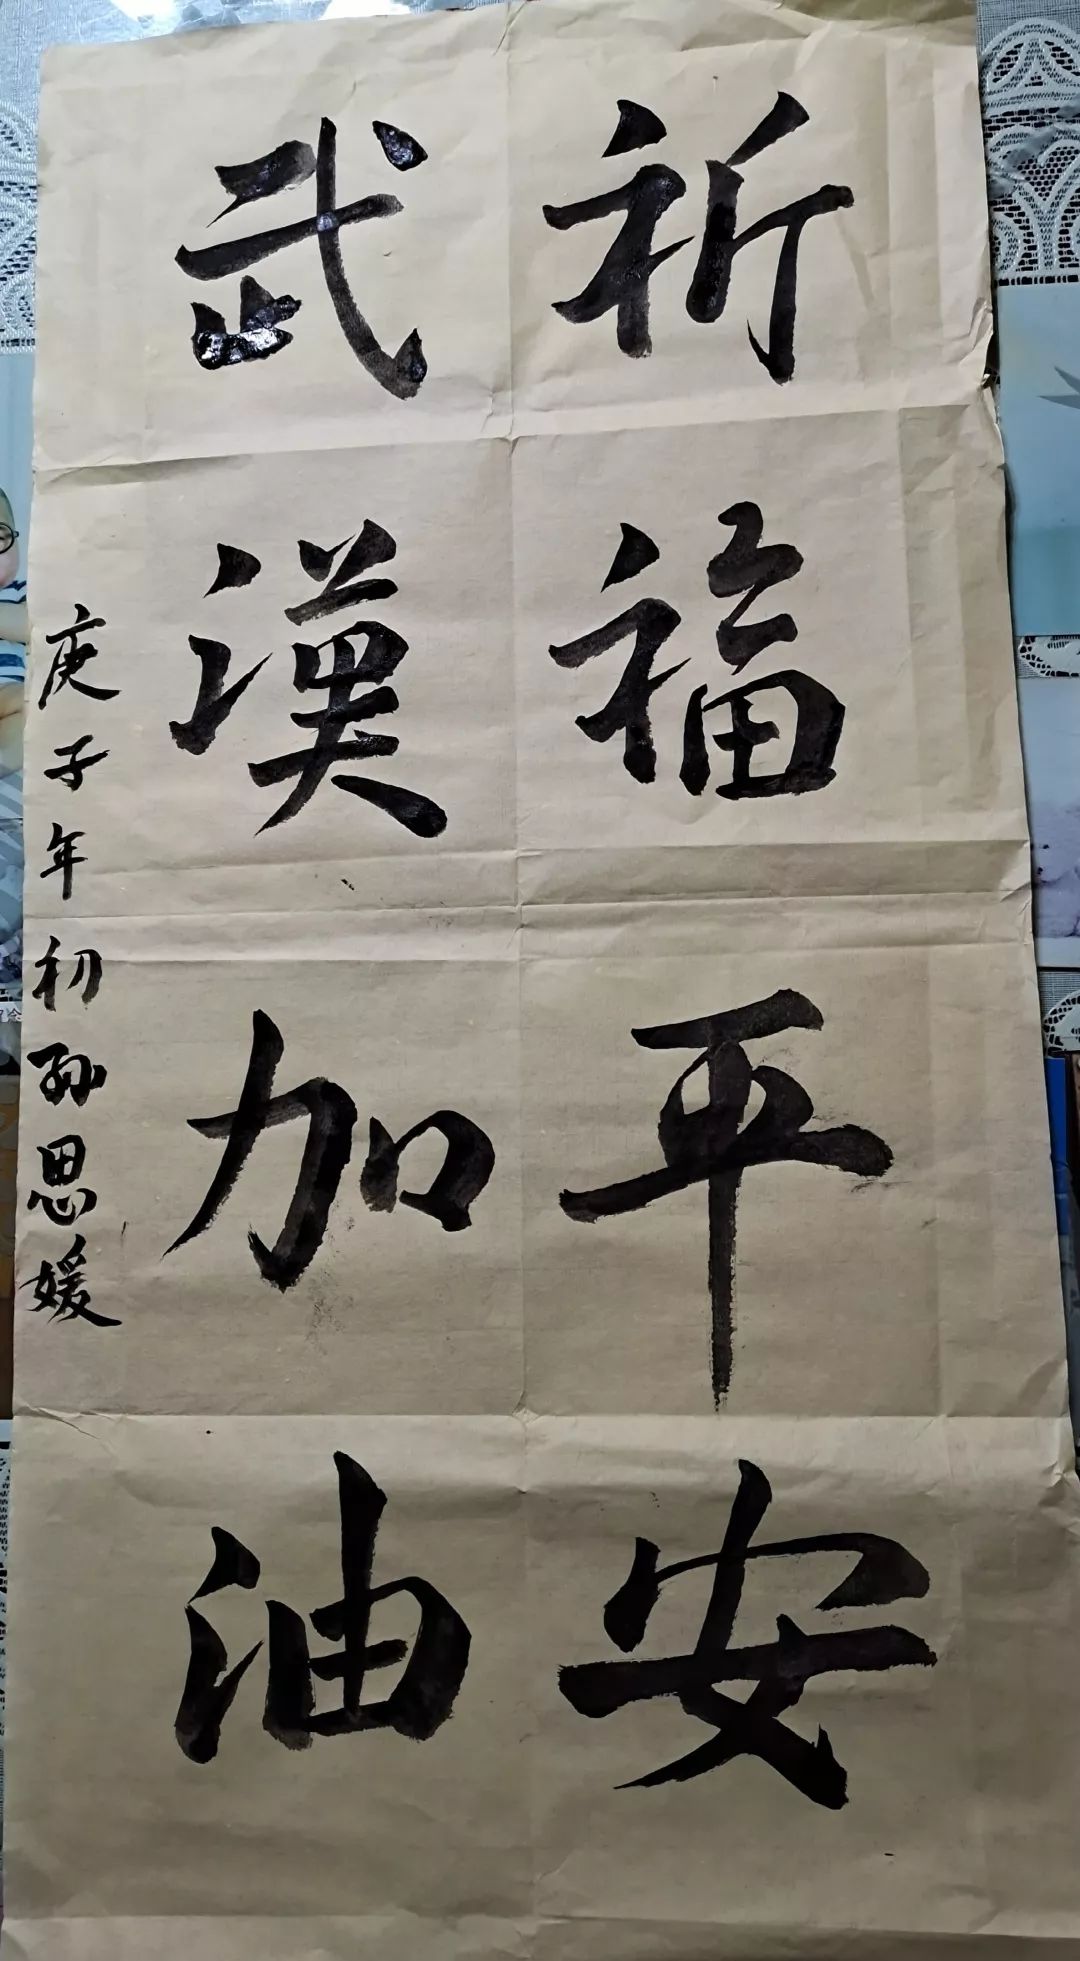 祈福平安
武漢加油
庚子年初孙思媛